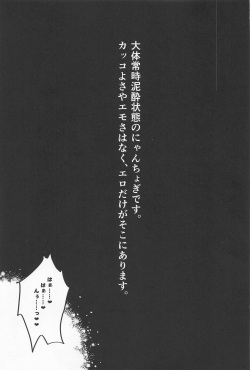 大体常時泥酔状態のにゃんちょぎです。
カッコよさやエモさはなく、エロだけがそこにあります。
はぁ……♥
はぁ……♥♥
んぅ……っ♥